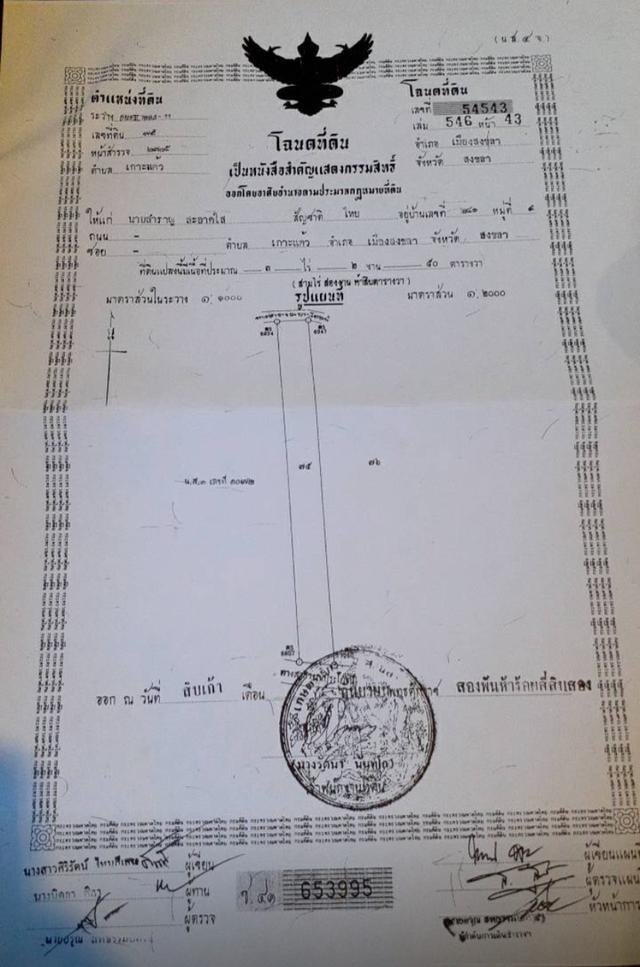 (น.ส.๔ จ)
ตำแหน่งที่ดิน
ระวาง
เลขที่ดิน ๗๕
หน้าสำรวจ
ตำบล เกาะแก้ว
โฉนดที่ดิน
เลขที่ 54543
เล่ม 546 หน้า 43
อำเภอ เมืองสงขลา
จังหวัด สงขลา
โฉนดที่ดิน
เป็นหนังสือสำคัญแสดงกรรมสิทธิ์
ออกโดยอาศัยอำนาจตามประมวลกฎหมายที่ดิน
ให้แก่ นายสำราญ สะอาดใส สัญชาติ ไทย อยู่บ้านเลขที่ หมู่ที่
ถนน -
ซอย - ตำบล เกาะแก้ว อำเภอ เมืองสงขลา จังหวัด สงขลา
ที่ดินแปลงนี้มีเนื้อที่ประมาณ ๓ ไร่ ๒ งาน ๕๐ ตารางวา
(สามไร่ สองงาน ห้าสิบตารางวา)
มาตราส่วนในระวาง ๑:๑๐๐๐ รูปแผนที่ มาตราส่วน ๑:๒๐๐๐
น
๗๕
๗๖
น.ส.๓ เลขที่
ออก ณ วันที่ สิบเก้า เดือน พุทธศักราช สองพันห้าร้อยสี่สิบสอง
นางสาวศิริรัตน์ ผู้เขียน
ผู้ทาน
ผู้ตรวจ
ว.๔๑ 653995
ผู้เขียนแผนที่
ผู้ตรวจแผน
หัวหน้าการ